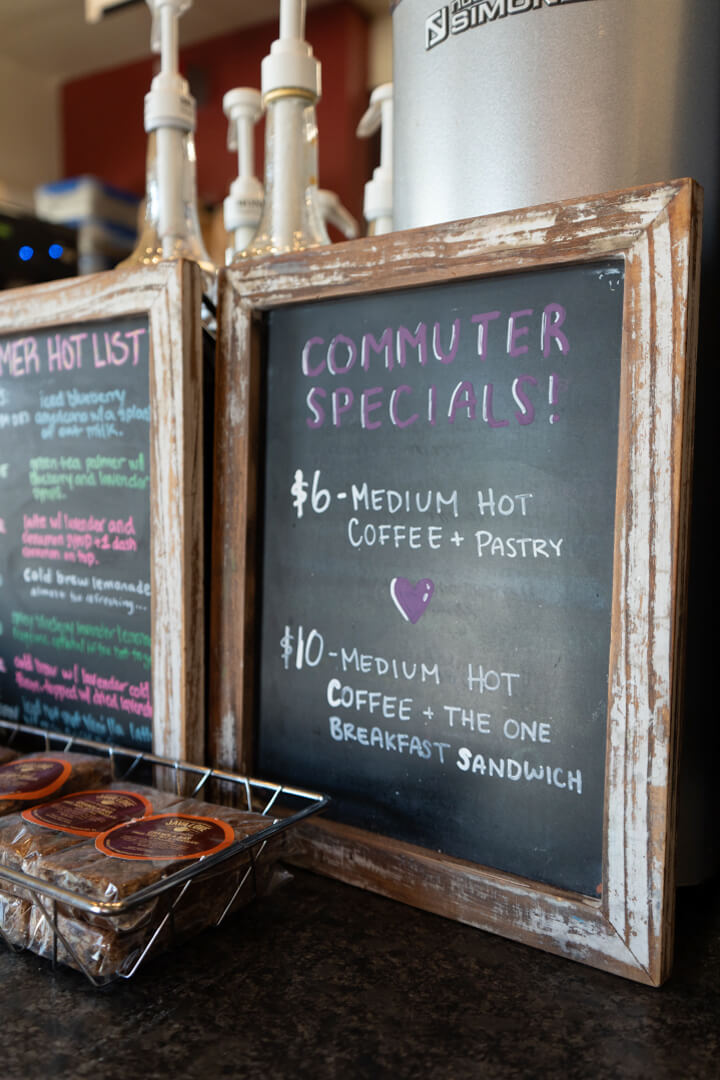 SIMON
MER HOT LIST
iced blueberry
w/ a splash
of oat milk.
green tea palmer w/
blueberry and lavender
syrups.
latte w/ lavender and
cinnamon syrup + 1 dash
cinnamon on top.
cold brew lemonade
almost too refreshing...
cold brew w/ lavender cold
foam - topped w/ dried lavender
COMMUTER
SPECIALS!
$6 - MEDIUM HOT
COFFEE + PASTRY
$10 - MEDIUM HOT
COFFEE + THE ONE
BREAKFAST SANDWICH